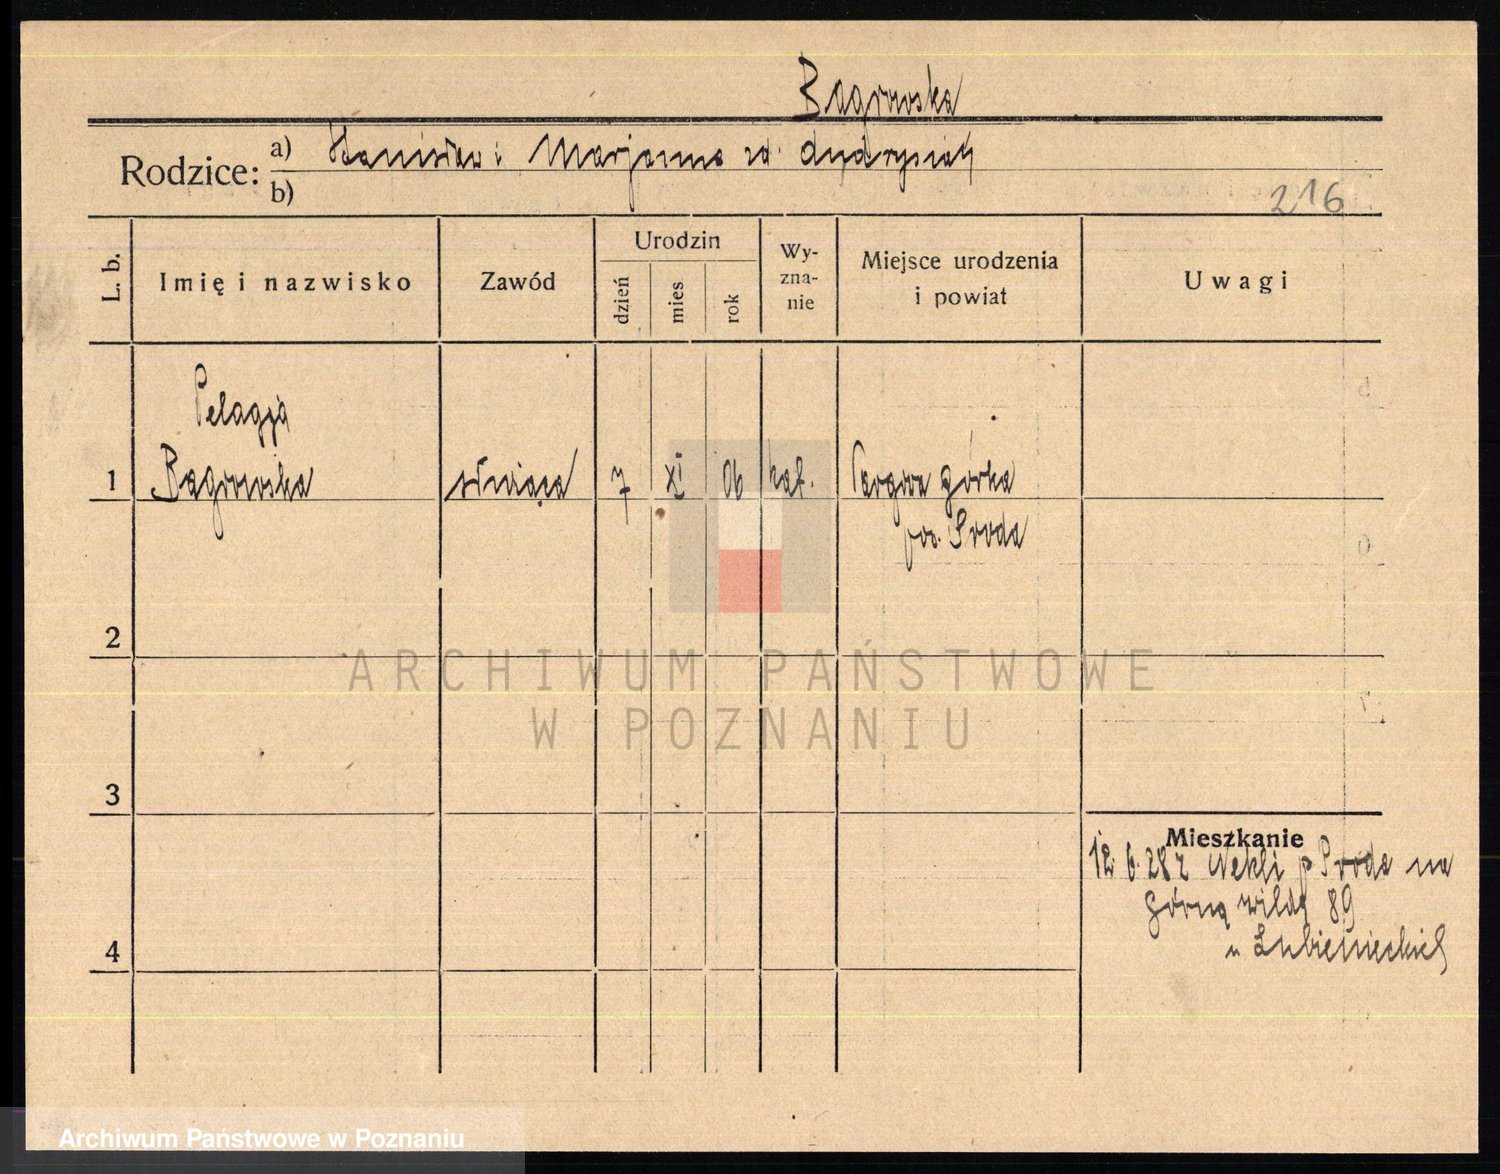 Bagrowska
Rodzice: a) Stanisław i Marjanna zd.
b)
216
L. b. Imię i nazwisko Zawód Urodzin dzień mies rok Wy-zna-nie Miejsce urodzenia i powiat Uwagi
Pelagja
1 Bagrowska służąca 7 XI 06 kat. Targowa górka
pow. Środa
2
3
4
Mieszkanie
12. 6. 28 z Nekli p Środa na
Górną Wildę 89
u Lubienieckich
ARCHIWUM PAŃSTWOWE
W POZNANIU
Archiwum Państwowe w Poznaniu